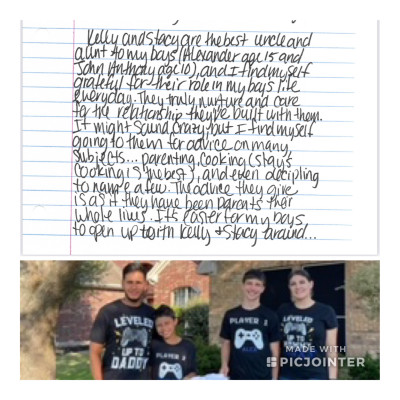 Kelly and Stacy are the best uncle and
aunt to my boys (Alexander age 15 and
John Anthony age 10), and I find myself
grateful for their role in my boys life
everyday. They truly nurture and care
for the relationship they've built with them.
It might sound crazy but I find myself
going to them for advice on many
subjects... parenting, cooking (Stay's
cooking is the best), and even decipling
to name a few. The advice they give
is as if they have been parents their
whole lives. It's easier for my boys
to open up to with Kelly + Stacy around...
LEVELED
UP TO
DADDY
PLAYER
PLAYER
LEVELED
UP TO
MADE WITH
PICJOINTER